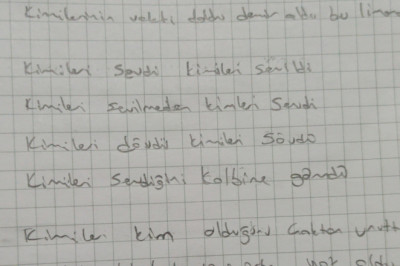 Kimilerinin vakti doldu demir aldı bu liman
Kimileri sevdi kimileri sevildi
Kimileri sevilmeden kimleri sevdi
Kimileri dövdü kimileri sövdü
Kimileri sevdiğini kalbine gömdü
Kimileri kim olduğunu çoktan unutt